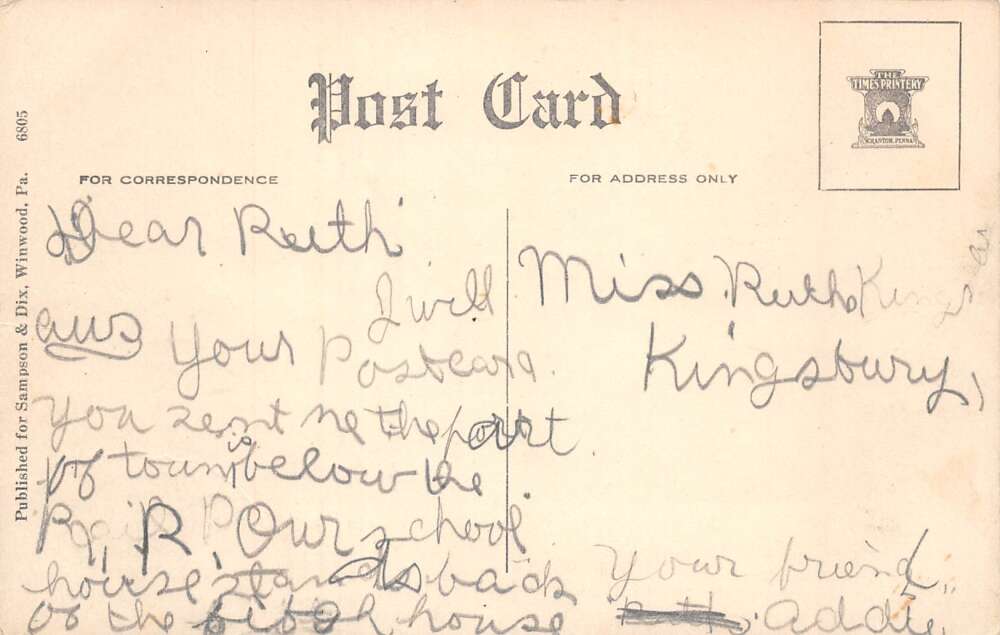 Published for Sampson & Dix, Winwood, Pa. 6805
Post Card
THE
TIMES PRINTERY
SCRANTON, PENNA
FOR CORRESPONDENCE
FOR ADDRESS ONLY
Dear Ruth
I will
ans Your Postcard.
You sent me the part
of town is below the
R, R, Our school
house stands back
of the house
Miss. Ruth Kings
Kingsbury,
Your friend,
Addie